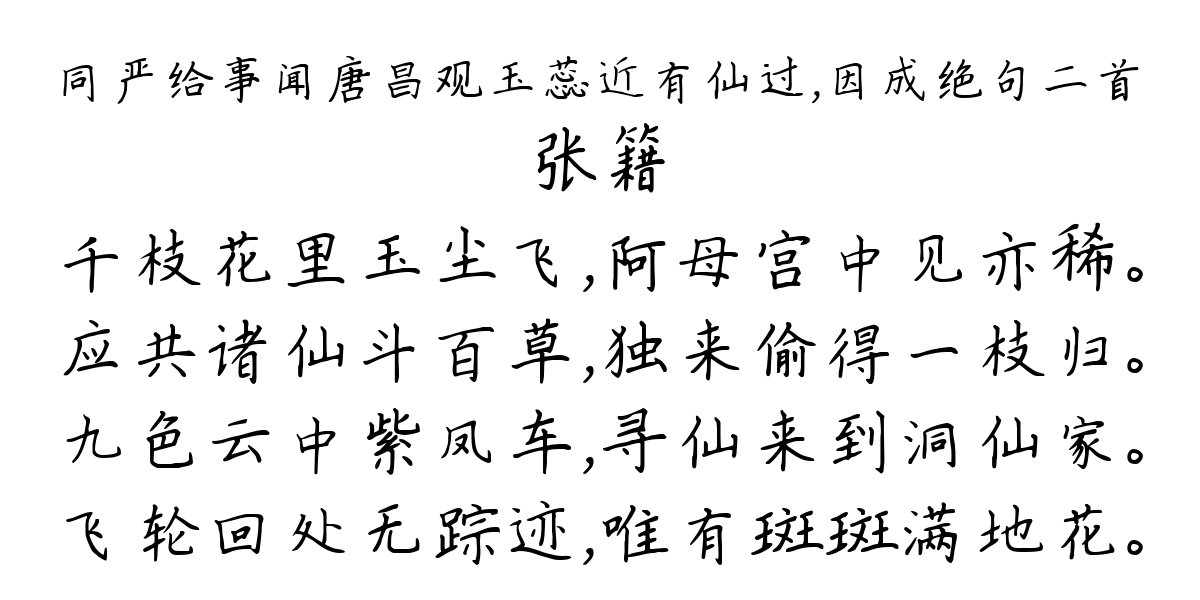 同严给事闻唐昌观玉蕊近有仙过,因成绝句二首
张籍
千枝花里玉尘飞,阿母宫中见亦稀。
应共诸仙斗百草,独来偷得一枝归。
九色云中紫凤车,寻仙来到洞仙家。
飞轮回处无踪迹,唯有斑斑满地花。